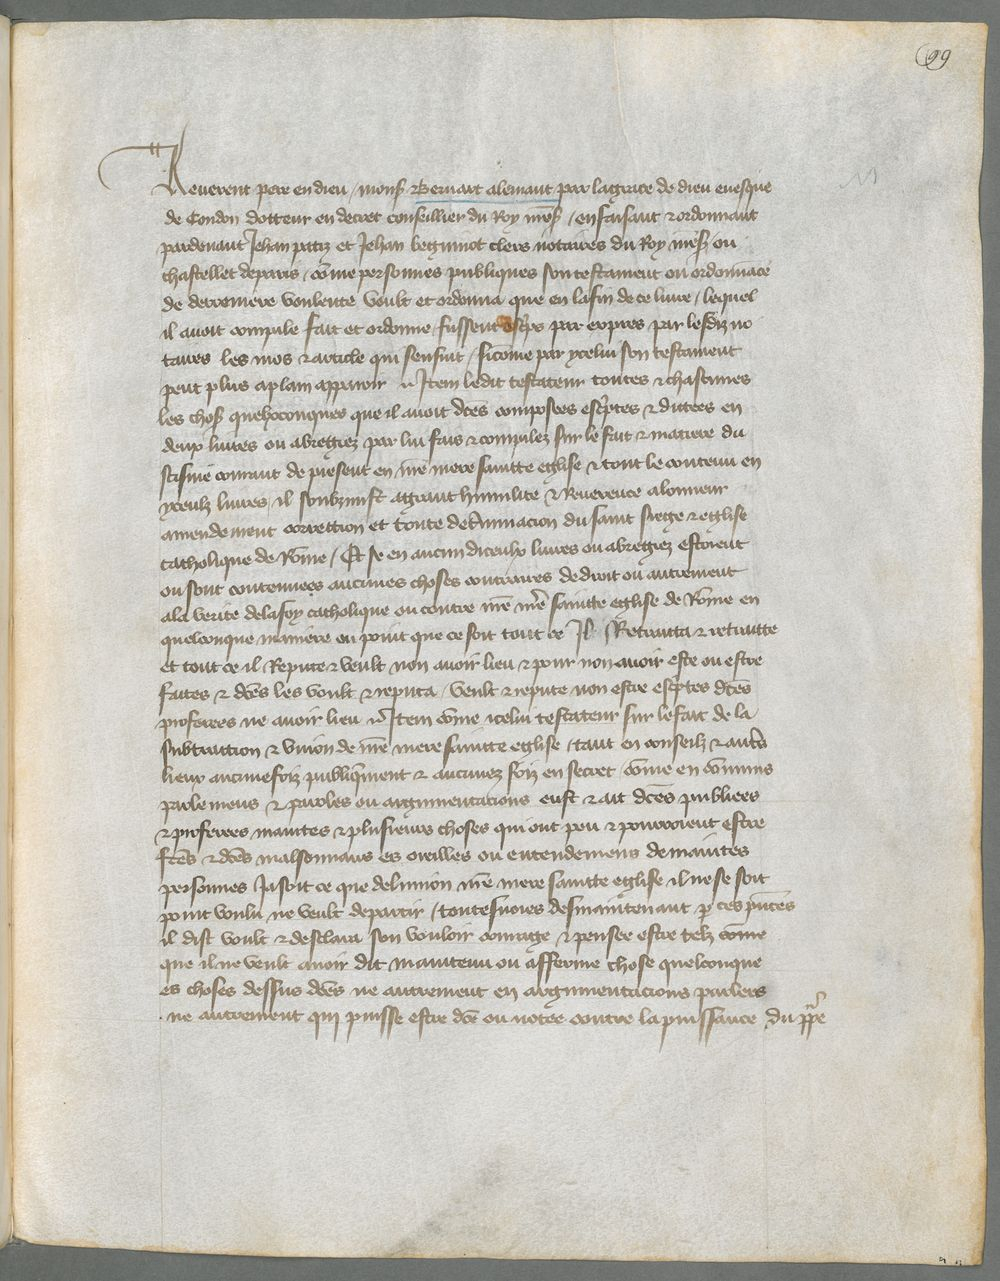 99
Reuerent pere en dieu / mons Bernart alemant par la grace de dieu euesque
de Condon docteur en decret conseillier du Roy nres / en faisant & ordonnant
pardeuant Jehan et Jehan beguinot clers notaires du Roy nres ou
chastellet de paris / come personnes publiques son testament ou ordonnance
de derreniere voulente voult et ordonna que en la fin de ce liure / lequel
il auoit compile fait et ordonne / fussent escrps par expres par lesdiz no
taires les mos & article qui sensuit / sicome par ycelui son testament
peut plus aplain apparoir Item ledit testateur toutes & chascunes
les chos quelxconques que il auoit dces composees escrptes & dictees en
deux liures ou abregiez par lui fais & compilez sur le fait & matiere du
scisme courant de present en nre mere saincte eglise & tout le contenu en
yceulx liures / il soubzmist a grant humilite & Reuerence alonneur
amendement correction et toute determinacion du saint siege & eglise
catholique de Rome / Et se en aucun diceulx liures ou abregiez estoient
ou sont contenues aucunes choses contraires de droit ou autrement
a la verite de la foy catholique ou contre nre mere saincte eglise de Rome en
quelconque maniere ou point que ce soit tout ce Il Retracta & retractte
et tout ce il Repute & veult non auoir lieu & pour non auoir este ou estre
faites & dces les voult & reputa / veult & repute non estre escrptes dces
proferees ne auoir lieu Item come icelui testateur sur le fait de la
subtraction & vnion de nre mere saincte eglise / tant en conseilz & autres
lieux aucunefoiz publiqment & aucunez foiz en secret / come en comuns
parlemens & paroles ou argumentacions eust & ait dces publiees
& proferees maintes & plusieurs choses qui ont peu & pourroient estre
fces & dces malsonnans es oreilles ou entendemens de maintes
personnes Ja soit ce que de lunion nre mere saincte eglise il ne se soit
point voulu ne veult departir / toutesuoies desmaintenant p ces pntes
il dist voult & desclaira son vouloir courage & pensee estre telz come
que il ne veult auoir dit maintenu ou afferme chose quelconque
es choses dessus dces ne autrement en argumentacions parlers
ne autrement qui puisse estre dce ou notee contre la puissance du ppe